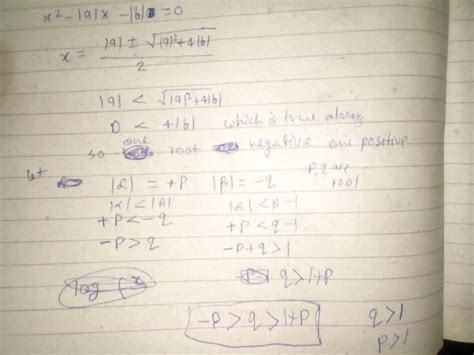 x² - |a|x - |b| = 0
x = |a| ± √(|a|²+4|b|) / 2
|a| < √(|a|²+4|b|)
0 < 4|b| which is true always
so one root negative one positive
let |α| = +P |β| = -q P, q are root
|α| < |β| |α| < β-1
+P < -q +P < q-1
-P > q -P+q > 1
q > 1+P
log
-P > q > 1+P q > 1
P > 1